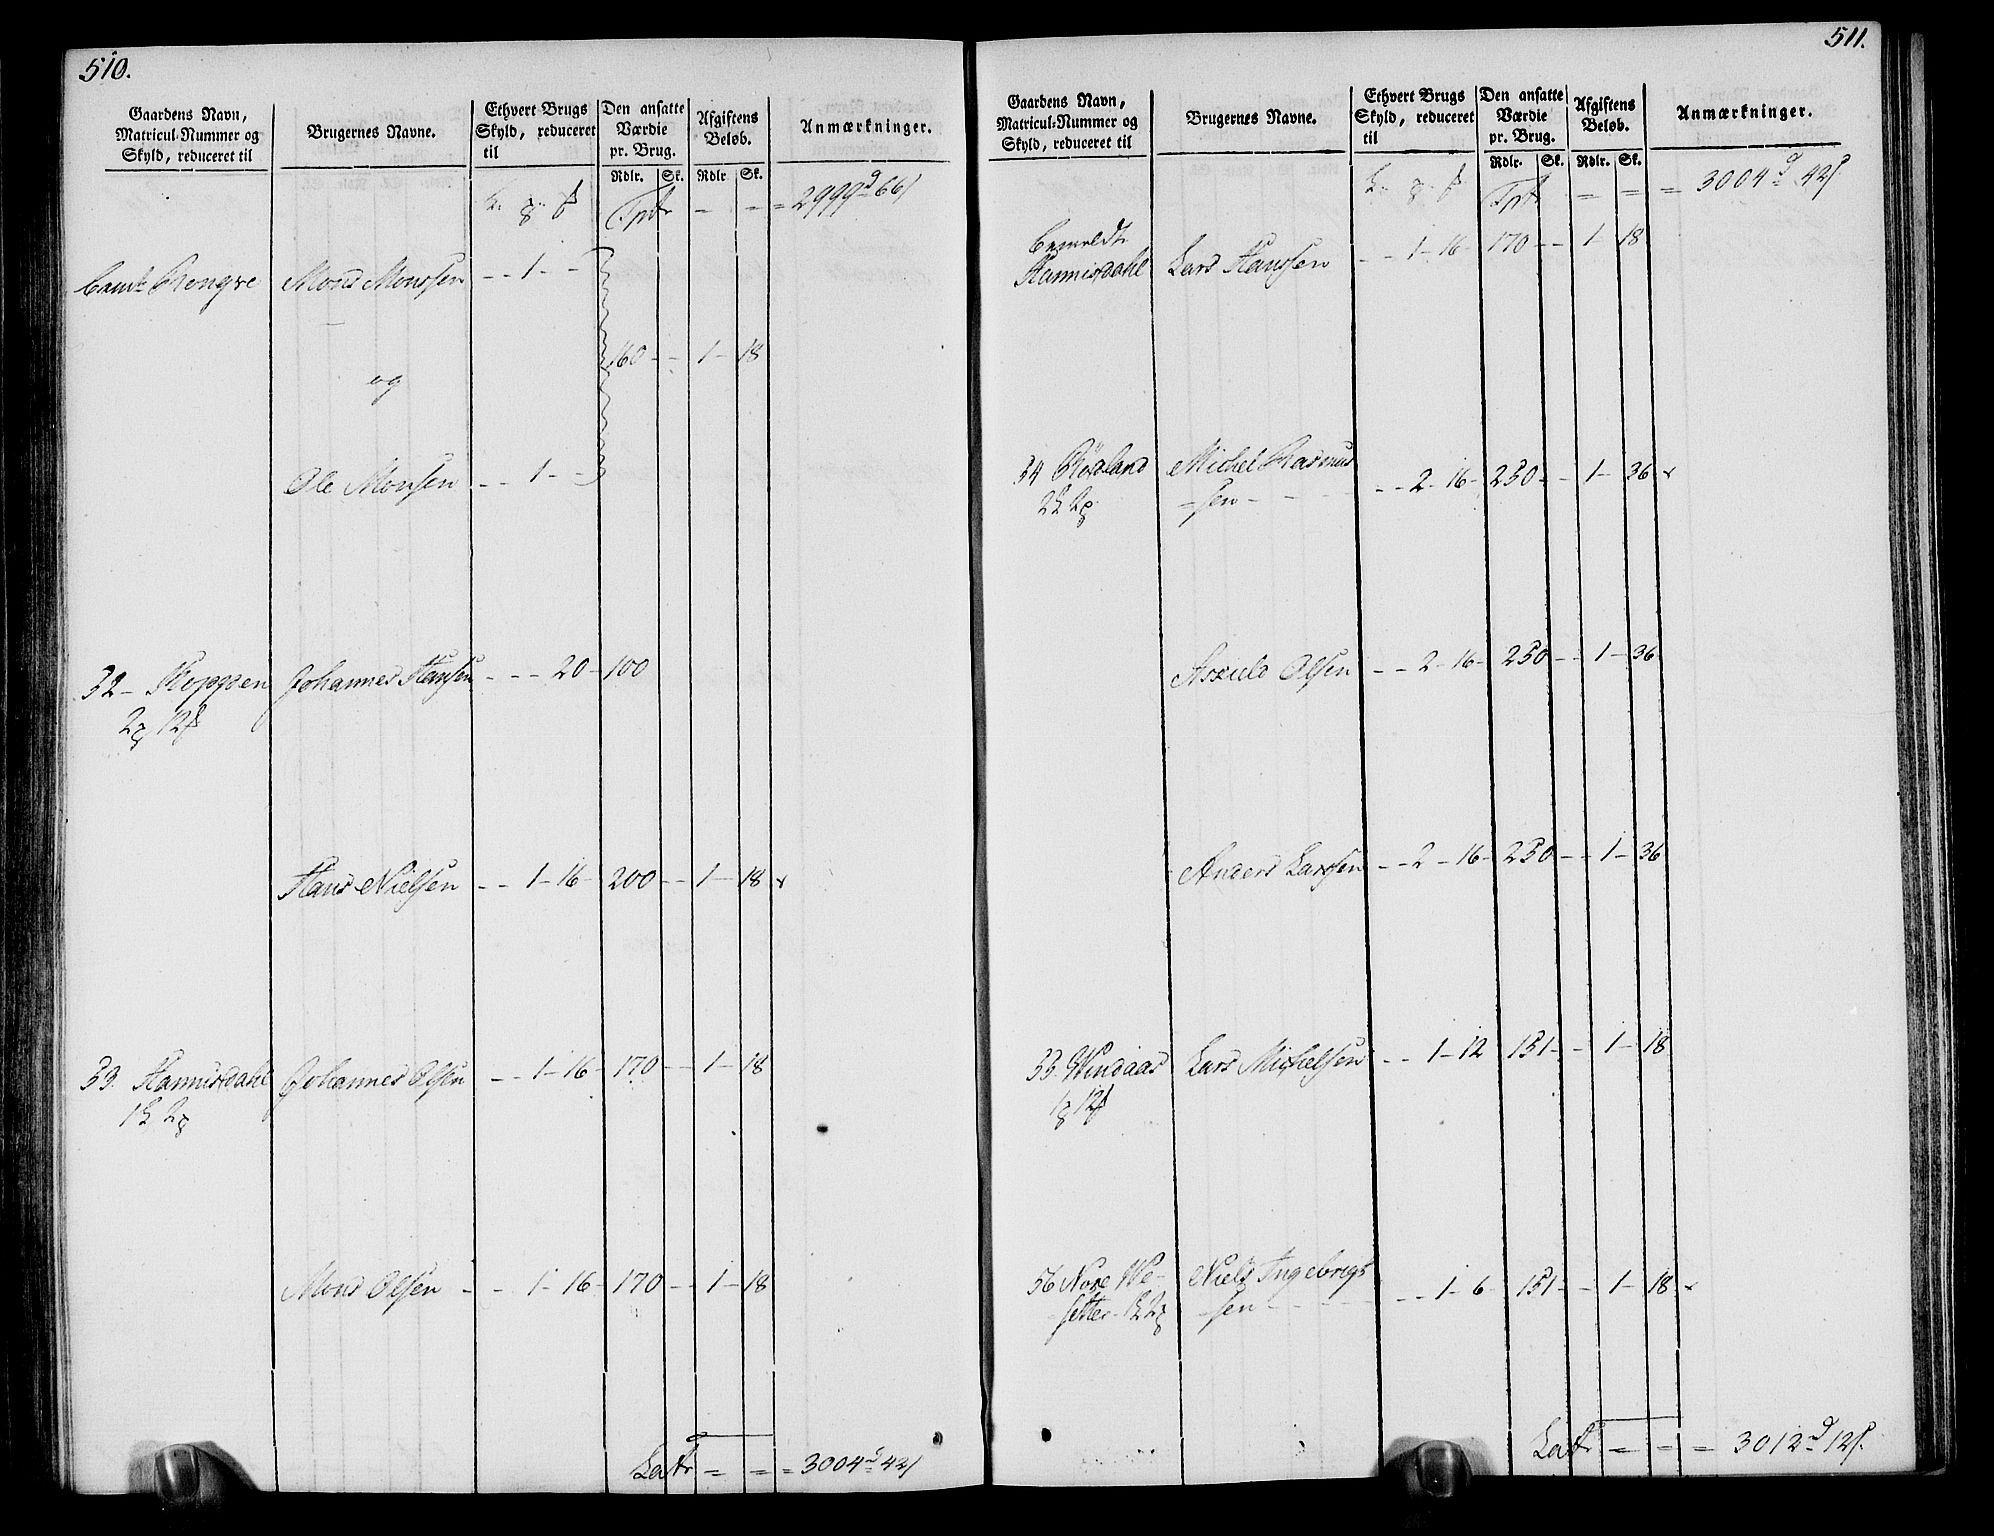 510.
Gaardens Navn, Matricul-Nummer og Skyld, reduceret til | Brugernes Navne. | Ethvert Brugs Skyld, reduceret til | Den ansatte Værdie pr. Brug. Rdlr. Sk. | Afgiftens Beløb. Rdlr Sk. | Anmærkninger.
Tptr - - = 2999 d 66 s
Mons Monssen - - 1 - -
160 - - 1 - 18
og
Ole Monsen - - 1 - -
32 - Johannes Hansen - - - 20 - 100
Hans Nielsen - - 1 - 16 - 200 - - 1 - 18
33. Hannisdahl Johannes Olsen - - 1 - 16 - 170 - - 1 - 18
Mons Olsen - - 1 - 16 - 170 - - 1 - 18
Latr = = = 3004 d 42 s
511.
Gaardens Navn, Matricul-Nummer og Skyld, reduceret til | Brugernes Navne. | Ethvert Brugs Skyld, reduceret til | Den ansatte Værdie pr. Brug. Rdlr. Sk. | Afgiftens Beløb. Rdlr. Sk. | Anmærkninger.
Tptr = = = 3004 d 42 s
Bemeldte
Hannisdahl Lars Hanssen - - 1 - 16 - 170 - - 1 - 18
34 Røsland Michel Rasmus
=sen - - - - 2 - 16 - 250 - - 1 - 36
Askild Olsen - - 2 - 16 - 250 - - 1 - 36
Anders Larssen - - 2 - 16 - 250 - - 1 - 36
Windaas Lars Michelsen - - 1 - 12 151 - - 1 - 18
Nore We-
Niels Ingebrigt
setter -sen - - - - 1 - 6 - 151 - - 1 - 18
Latr = = = 3012 d 12 s.